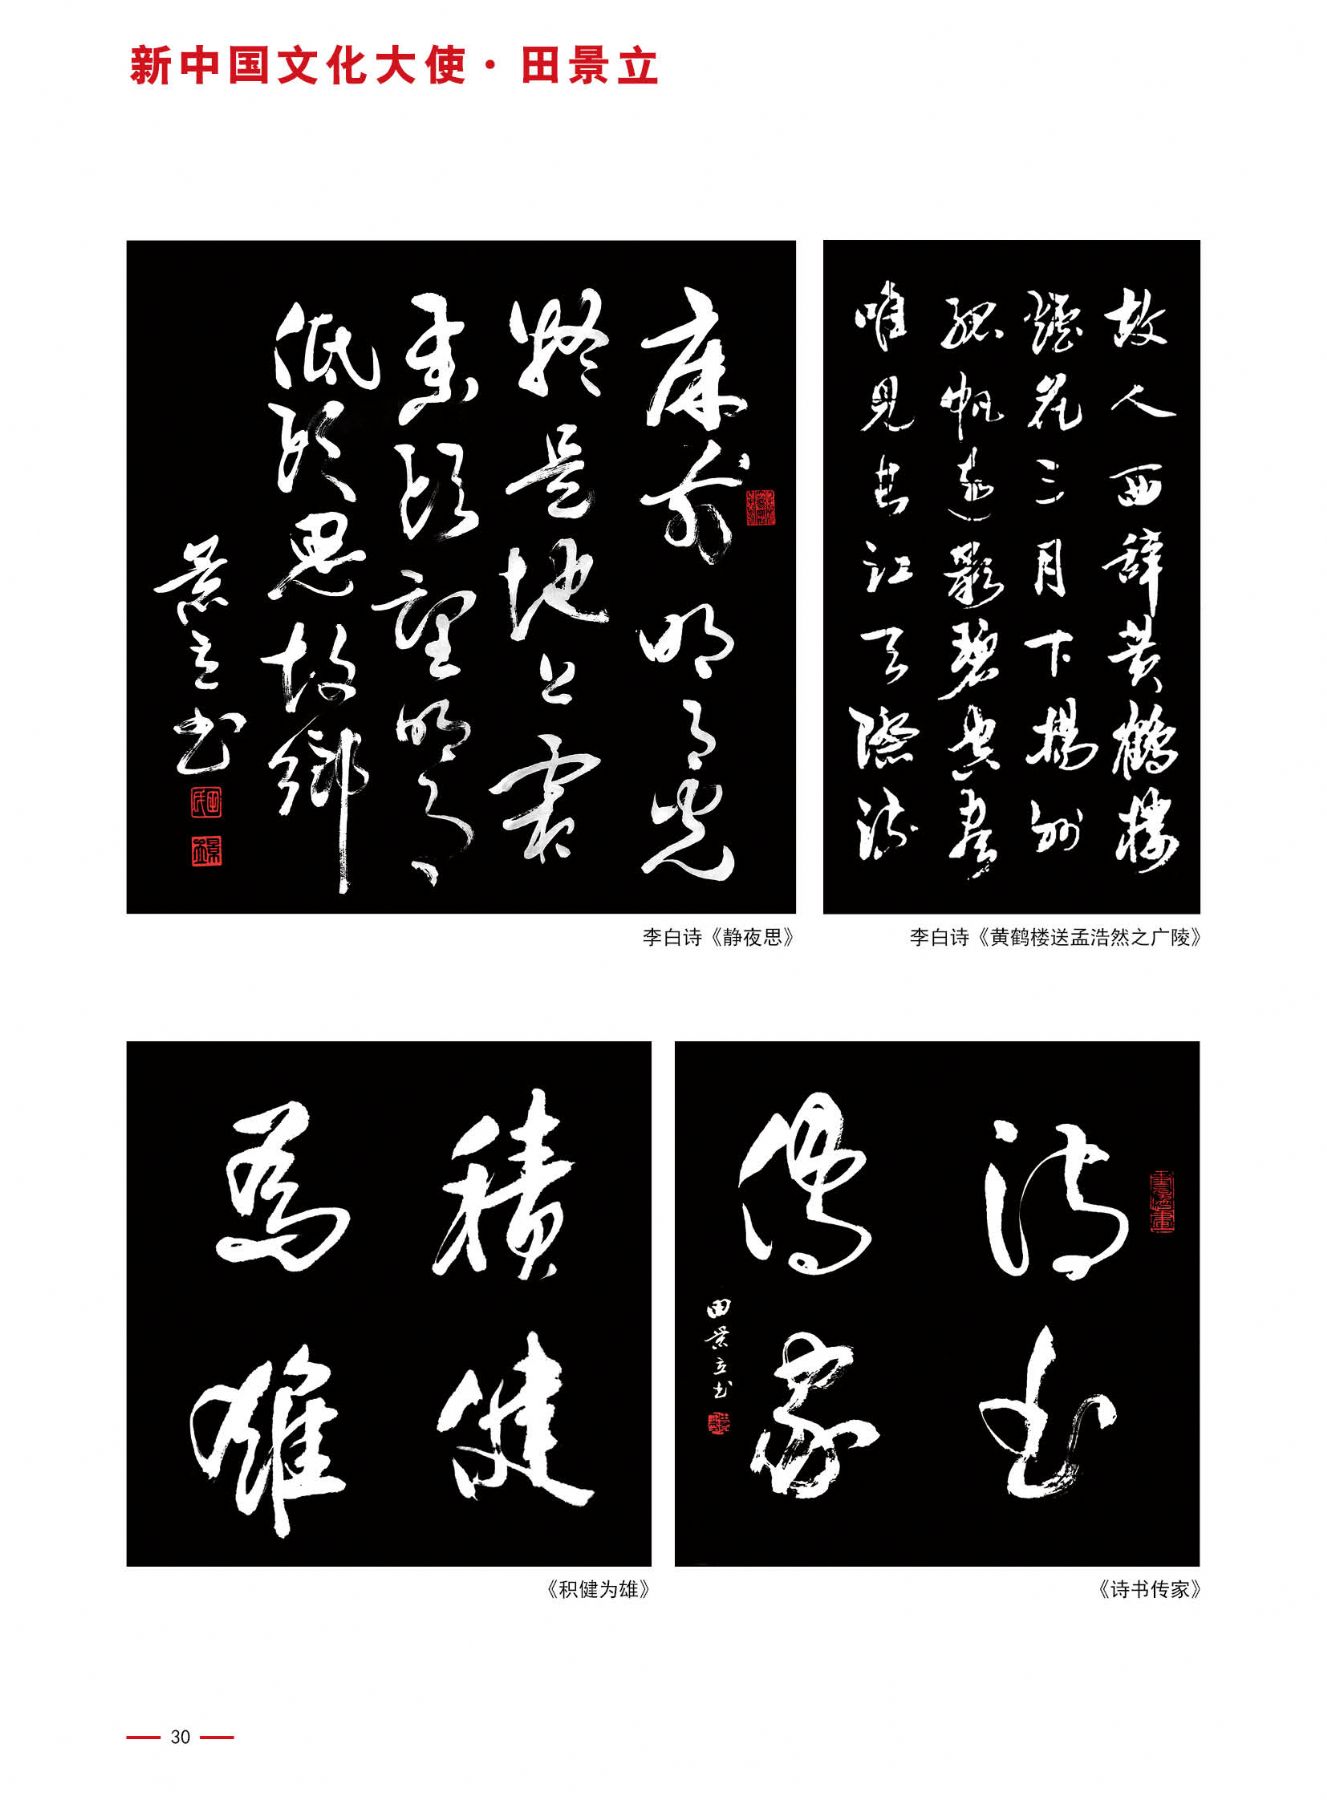 新中国文化大使·田景立
床前明月光
疑是地上霜
舉頭望明月
低頭思故鄉
景立書
田氏
景立
李白诗《静夜思》
故人西辭黄鶴樓
煙花三月下揚州
孤帆遠影碧空盡
唯見長江天際流
李白诗《黄鹤楼送孟浩然之广陵》
積健
為雄
《积健为雄》
詩書
傳家
田景立書
《诗书传家》
30